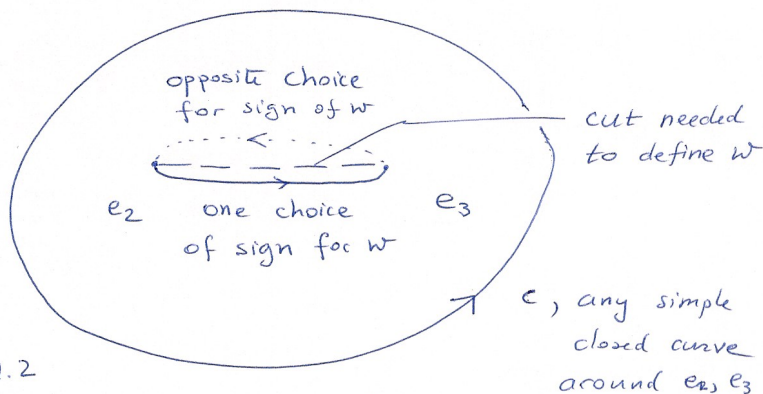 opposite choice
for sign of w
cut needed
to define w
e2
one choice
of sign for w
e3
c, any simple
closed curve
around e2, e3
.2